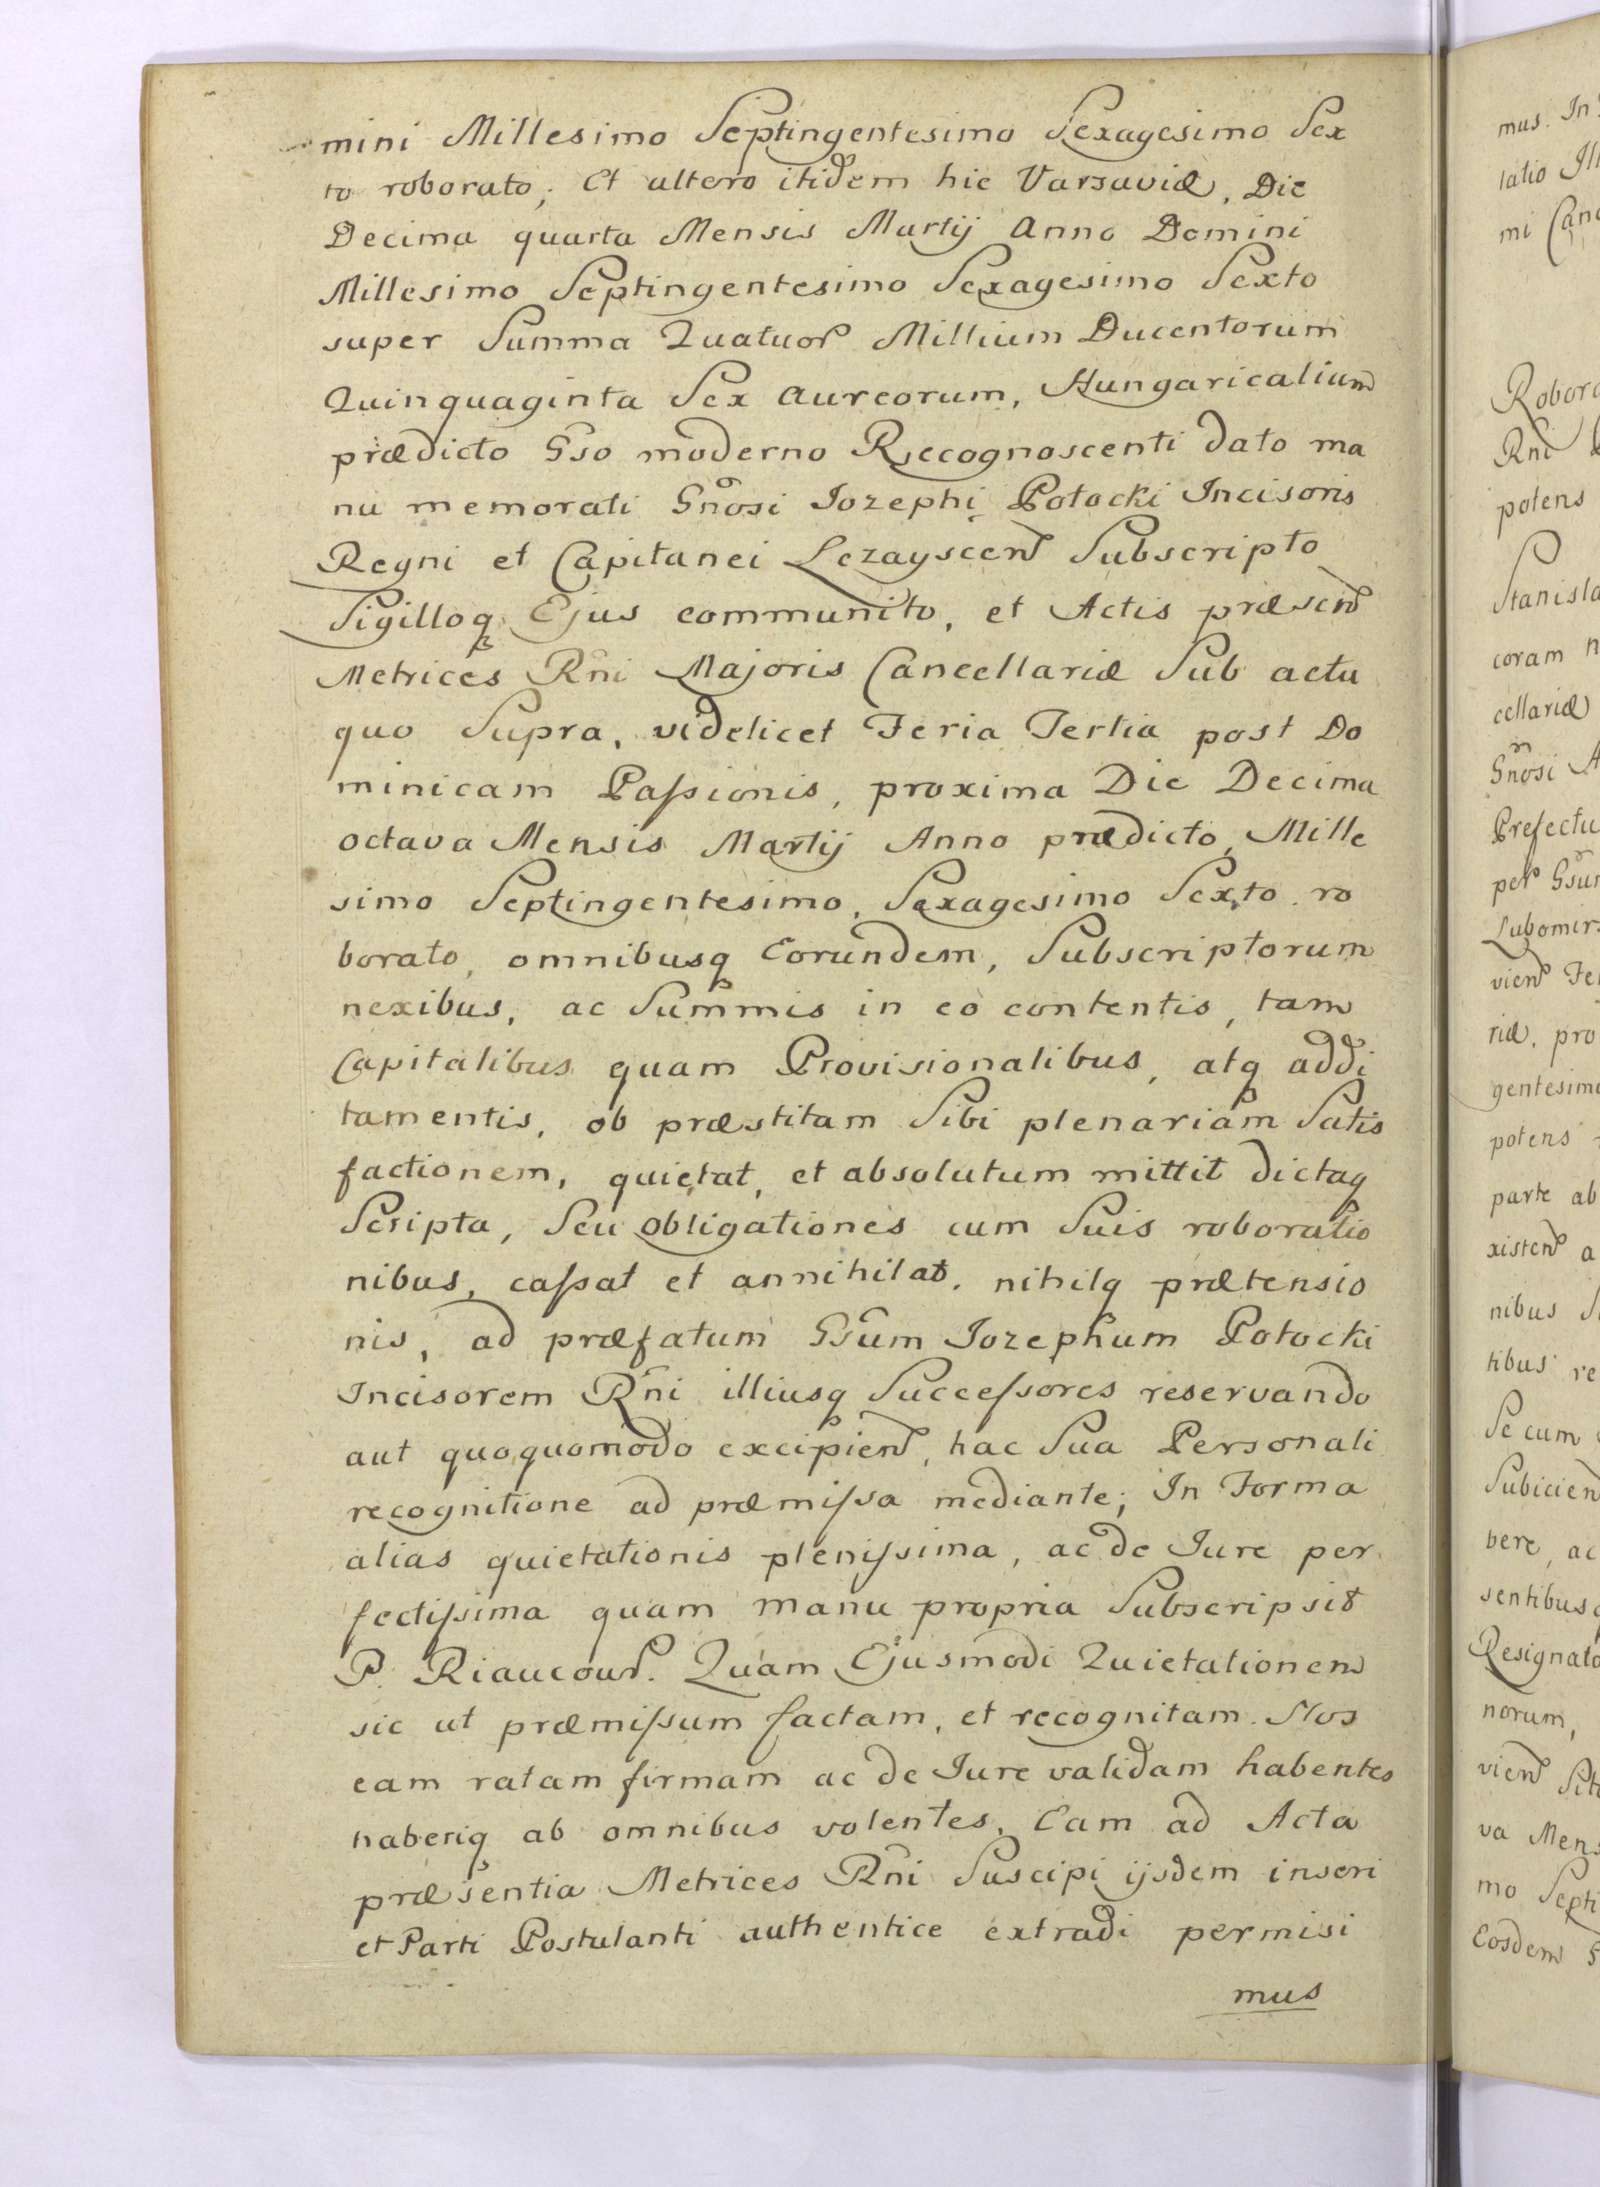 mini Millesimo Septingentesimo Sexagesimo Sex
to roborato, Et altero itidem hic Varsaviæ, Die
Decima quarta Mensis Martij Anno Domini
Millesimo Septingentesimo Sexagesimo Sexto
super Summa Quatuor Millium Ducentorum
Quinquaginta Sex aureorum, Hungaricalium
prædicto Gso moderno Recognoscenti dato ma
nu memorati Gnosi Iozephi Potocki Incisoris
Regni et Capitanei Lezayscen Subscripto
Sigilloq Ejus communito, et Actis præsen
Metrices Rni Majoris Cancellariæ Sub actu
quo Supra, videlicet Feria Tertia post Do
minicam Paſsionis, proxima Die Decima
octava Mensis Martij Anno prædicto, Mille
simo Septingentesimo, Sexagesimo Sexto ro
borato, omnibusq Eorundem, Subscriptorum
nexibus, ac Summis in eo contentis, tam
Capitalibus quam Provisionalibus, atq addi
tamentis, ob præstitam Sibi plenariam Satis
factionem, quietat, et absolutum mittit dictaq
Scripta, Seu obligationes cum Suis roboratio
nibus, caſsat et annihilat, nihilq prætensio
nis, ad præfatum Gsum Iozephum Potocki
Incisorem Rni illiusq Succeſsores reservando
aut quoquomodo excipien, hac Sua Personali
recognitione ad præmiſsa mediante; In Forma
alias quietationis pleniſsima, ac de Iure per
fectiſsima quam manu propria Subscripsit
P. Riaucour. Quam Ejusmodi Quietationem
sic ut præmiſsum factam, et recognitam. Nos
eam ratam firmam ac de Iure validam habentes
haberiq ab omnibus volentes, Eam ad Acta
præsentia Metrices Rni Suscipi ijsdem inseri
et Parti Postulanti authentice extradi permisi
mus
mus. In
latio
mi
Rni
potens
Stanisla
coram
cellariæ
Gnosi
Prefectu
per
Lubomir
vien
riæ, pro
gentesim
potens
parte ab
xisten a
nibus
tibus re
Se cum
Subicien
bere, ac
sentibusq
Resignato
norum,
vien
va Mens
mo Septi
Eosdem